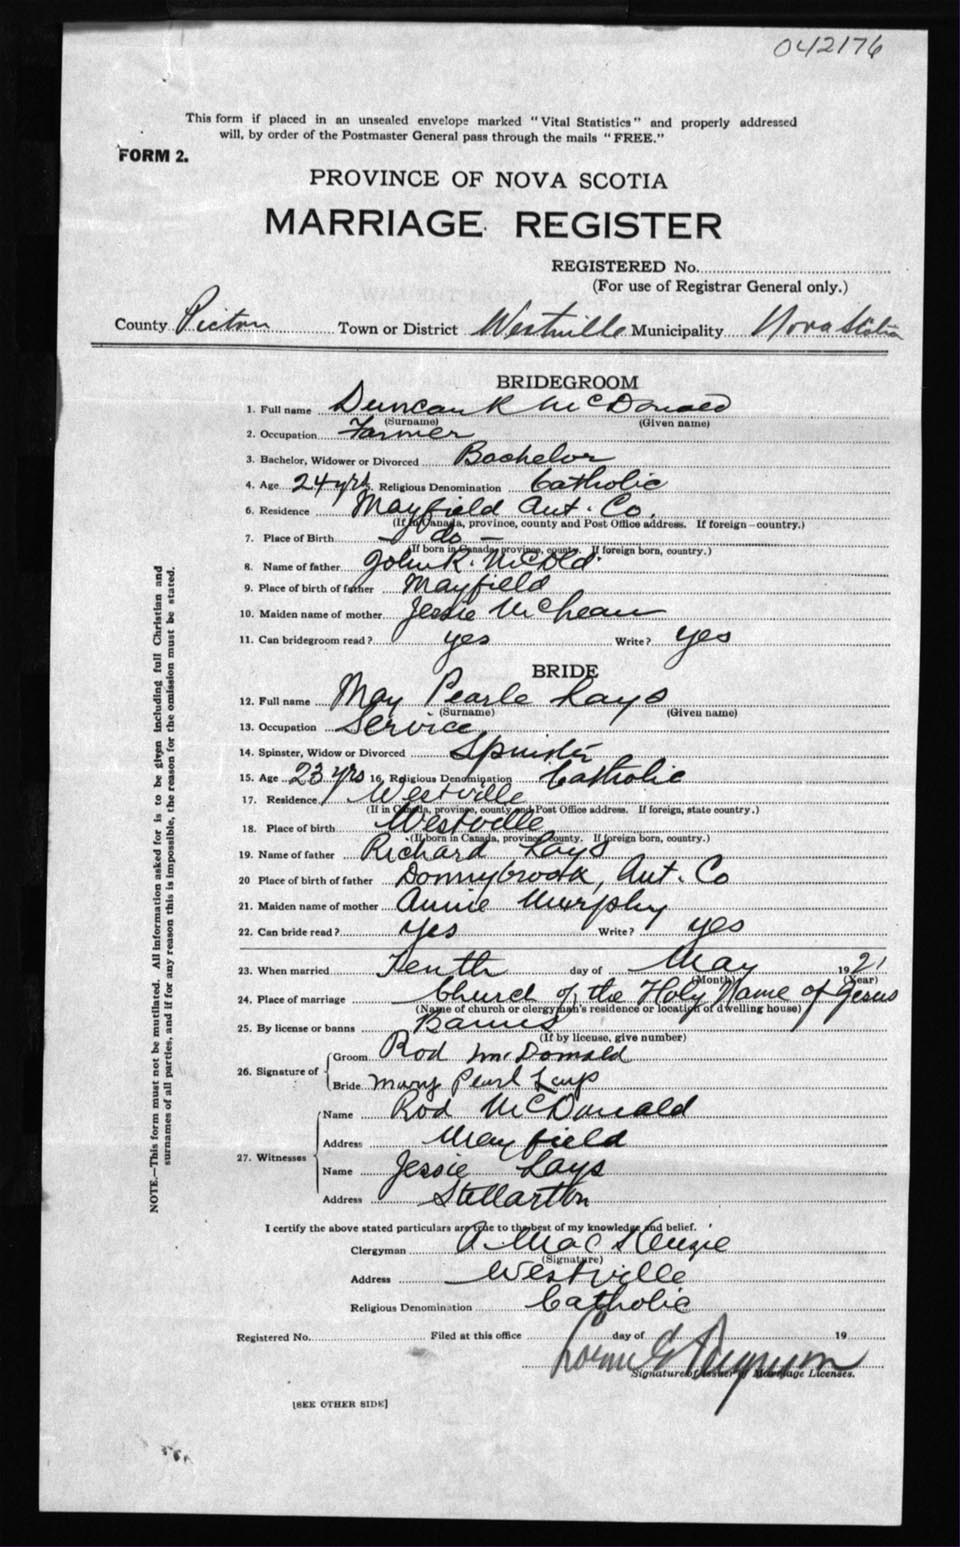 042176
This form if placed in an unsealed envelope marked "Vital Statistics" and properly addressed
will, by order of the Postmaster General pass through the mails "FREE."
FORM 2.
PROVINCE OF NOVA SCOTIA
MARRIAGE REGISTER
REGISTERED No.
(For use of Registrar General only.)
County Pictou Town or District Westville Municipality Nova Scotia
BRIDEGROOM
1. Full name Duncan R McDonald
(Surname) (Given name)
2. Occupation Farmer
3. Bachelor, Widower or Divorced Bachelor
4. Age 24 yrs. Religious Denomination Catholic
6. Residence Mayfield Ant. Co.
(If in Canada, province, county and Post Office address. If foreign—country.)
7. Place of Birth — do —
(If born in Canada, province, county. If foreign born, country.)
8. Name of father John R. McDld.
9. Place of birth of father Mayfield
10. Maiden name of mother Jessie McLean
11. Can bridegroom read? yes Write? yes
BRIDE
12. Full name May Pearle Lays
(Surname) (Given name)
13. Occupation Service
14. Spinster, Widow or Divorced Spinster
15. Age 23 yrs 16. Religious Denomination Catholic
17. Residence Westville
(If in Canada, province, county and Post Office address. If foreign, state country.)
18. Place of birth Westville
(If born in Canada, province, county. If foreign born, country.)
19. Name of father Richard Lays
20 Place of birth of father Donnybrook, Ant. Co
21. Maiden name of mother Annie Murphy
22. Can bride read? Yes Write? yes
23. When married Tenth day of May 1921
(Month) (Year)
24. Place of marriage Church of the Holy Name of Jesus
(Name of church or clergyman's residence or location of dwelling house)
25. By license or banns Banns
(If by license, give number)
26. Signature of
Groom Rod McDonald
Bride Mary Pearl Lays
27. Witnesses
Name Rod McDonald
Address Mayfield
Name Jessie Lays
Address Stellarton
I certify the above stated particulars are true to the best of my knowledge and belief.
Clergyman R. MacKenzie
(Signature)
Address Westville
Religious Denomination Catholic
Registered No. Filed at this office day of 19
Signature of Issuer of Marriage Licenses.
[SEE OTHER SIDE]
NOTE.—This form must not be mutilated. All information asked for is to be given including full Christian and
surnames of all parties, and if for any reason this is impossible, the reason for the omission must be stated.